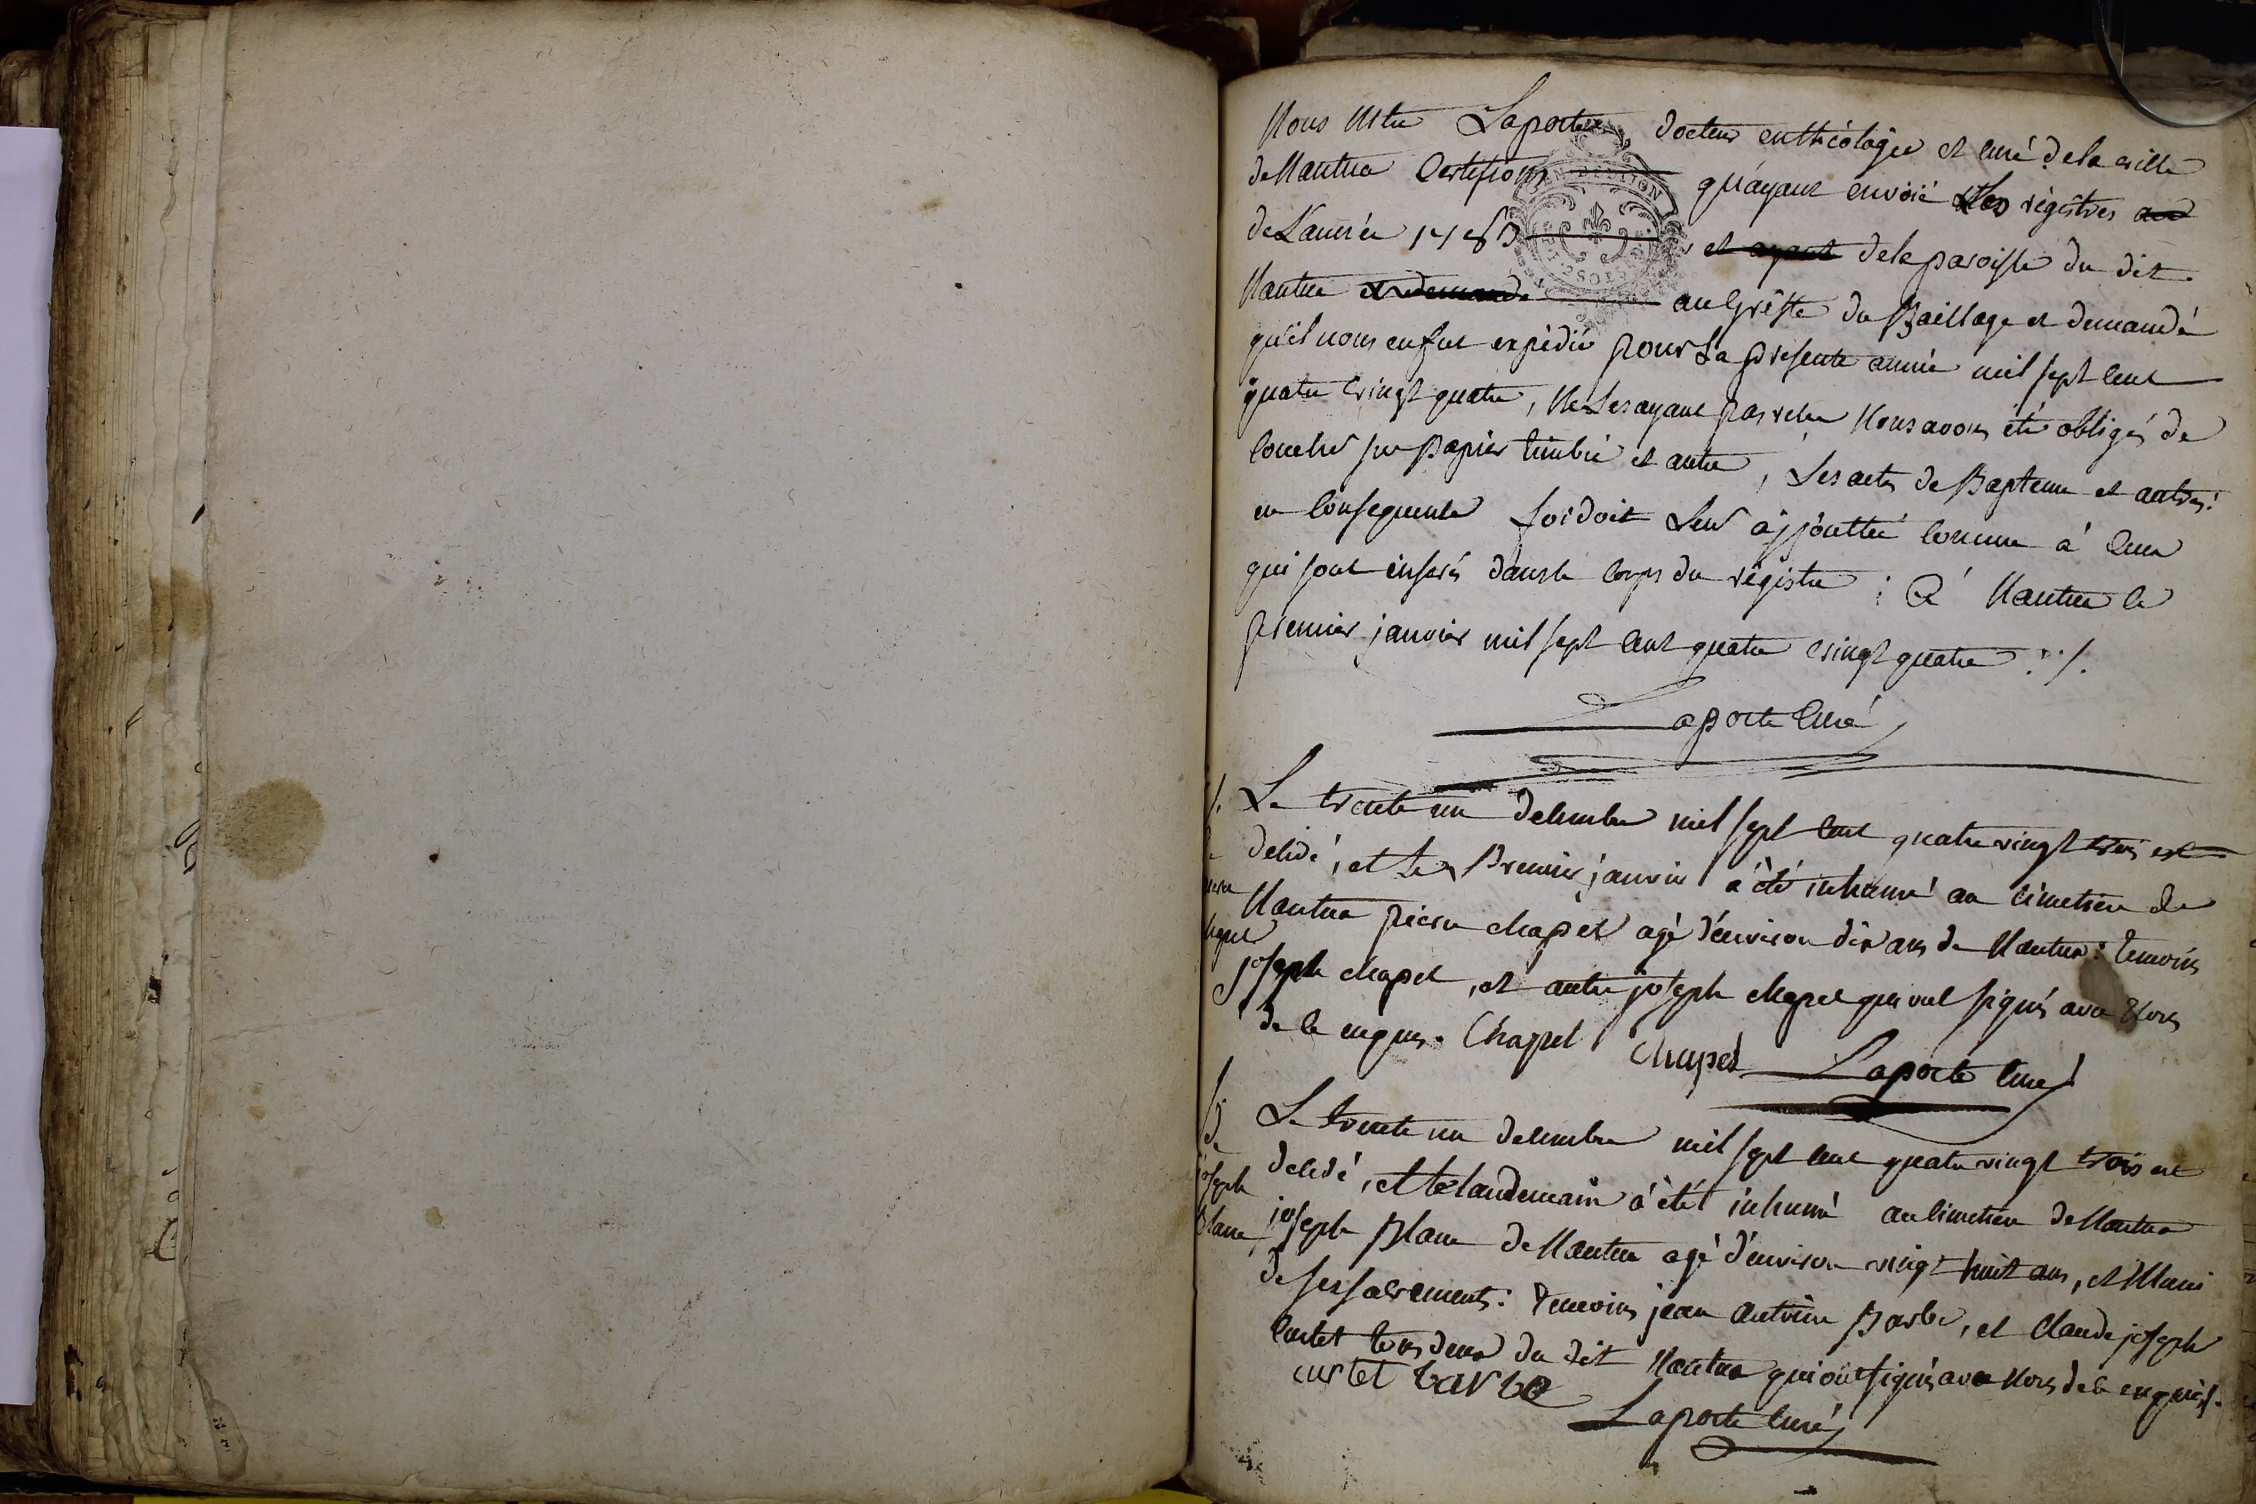 Nous Mtre Laporte docteur enthéologie et curé dela ville
deNantua Certifions qu'ayant envoié Les régistres
deL'année 1783 et ayant dela paroisse du dit
Nantua et demandé au Greffe du Baillage et demandé
qu'il nous en fut expédié pour La présente année mil sept cent
quatre vingt quatre, Ne Les ayant pas Nous avons été obligés de
coucher sur papier timbré et autre, Les actes de Bapteme et autres:
en consequence foi doit Leur ajjouttée comme à ceux
qui sont insérés dans le corps du régistre : à Nantua le
premier janvier mil sept cent quatre vingt quatre ./.
Laporte Curé
Le trente un decembre mil sept cent quatre vingt trois est
décidé, et Le Premier janvier a été inhumé au cimetiere de
Nantua pierre chapel agé d'environ dix ans de Nantua : temoins
joseph chapel, et autre joseph chapel qui ont signés avec Nous
de ce enquis. Chapel Chapel Laporte Curé
S.
de
joseph
Blanc
Le trente un decembre mil sept cent quatre vingt trois est
decidé, et le landemain a été inhumé au cimetiere deNantua
joseph Blanc deNantua agé d'environ vingt huit ans, et Muni
de ses sacrements : temoins jean antoine Barbe, et Claude joseph
Curtet tous deux du dit Nantua qui ont signés avec Nous de ce enquis ./.
curtet barbe
Laporte Curé